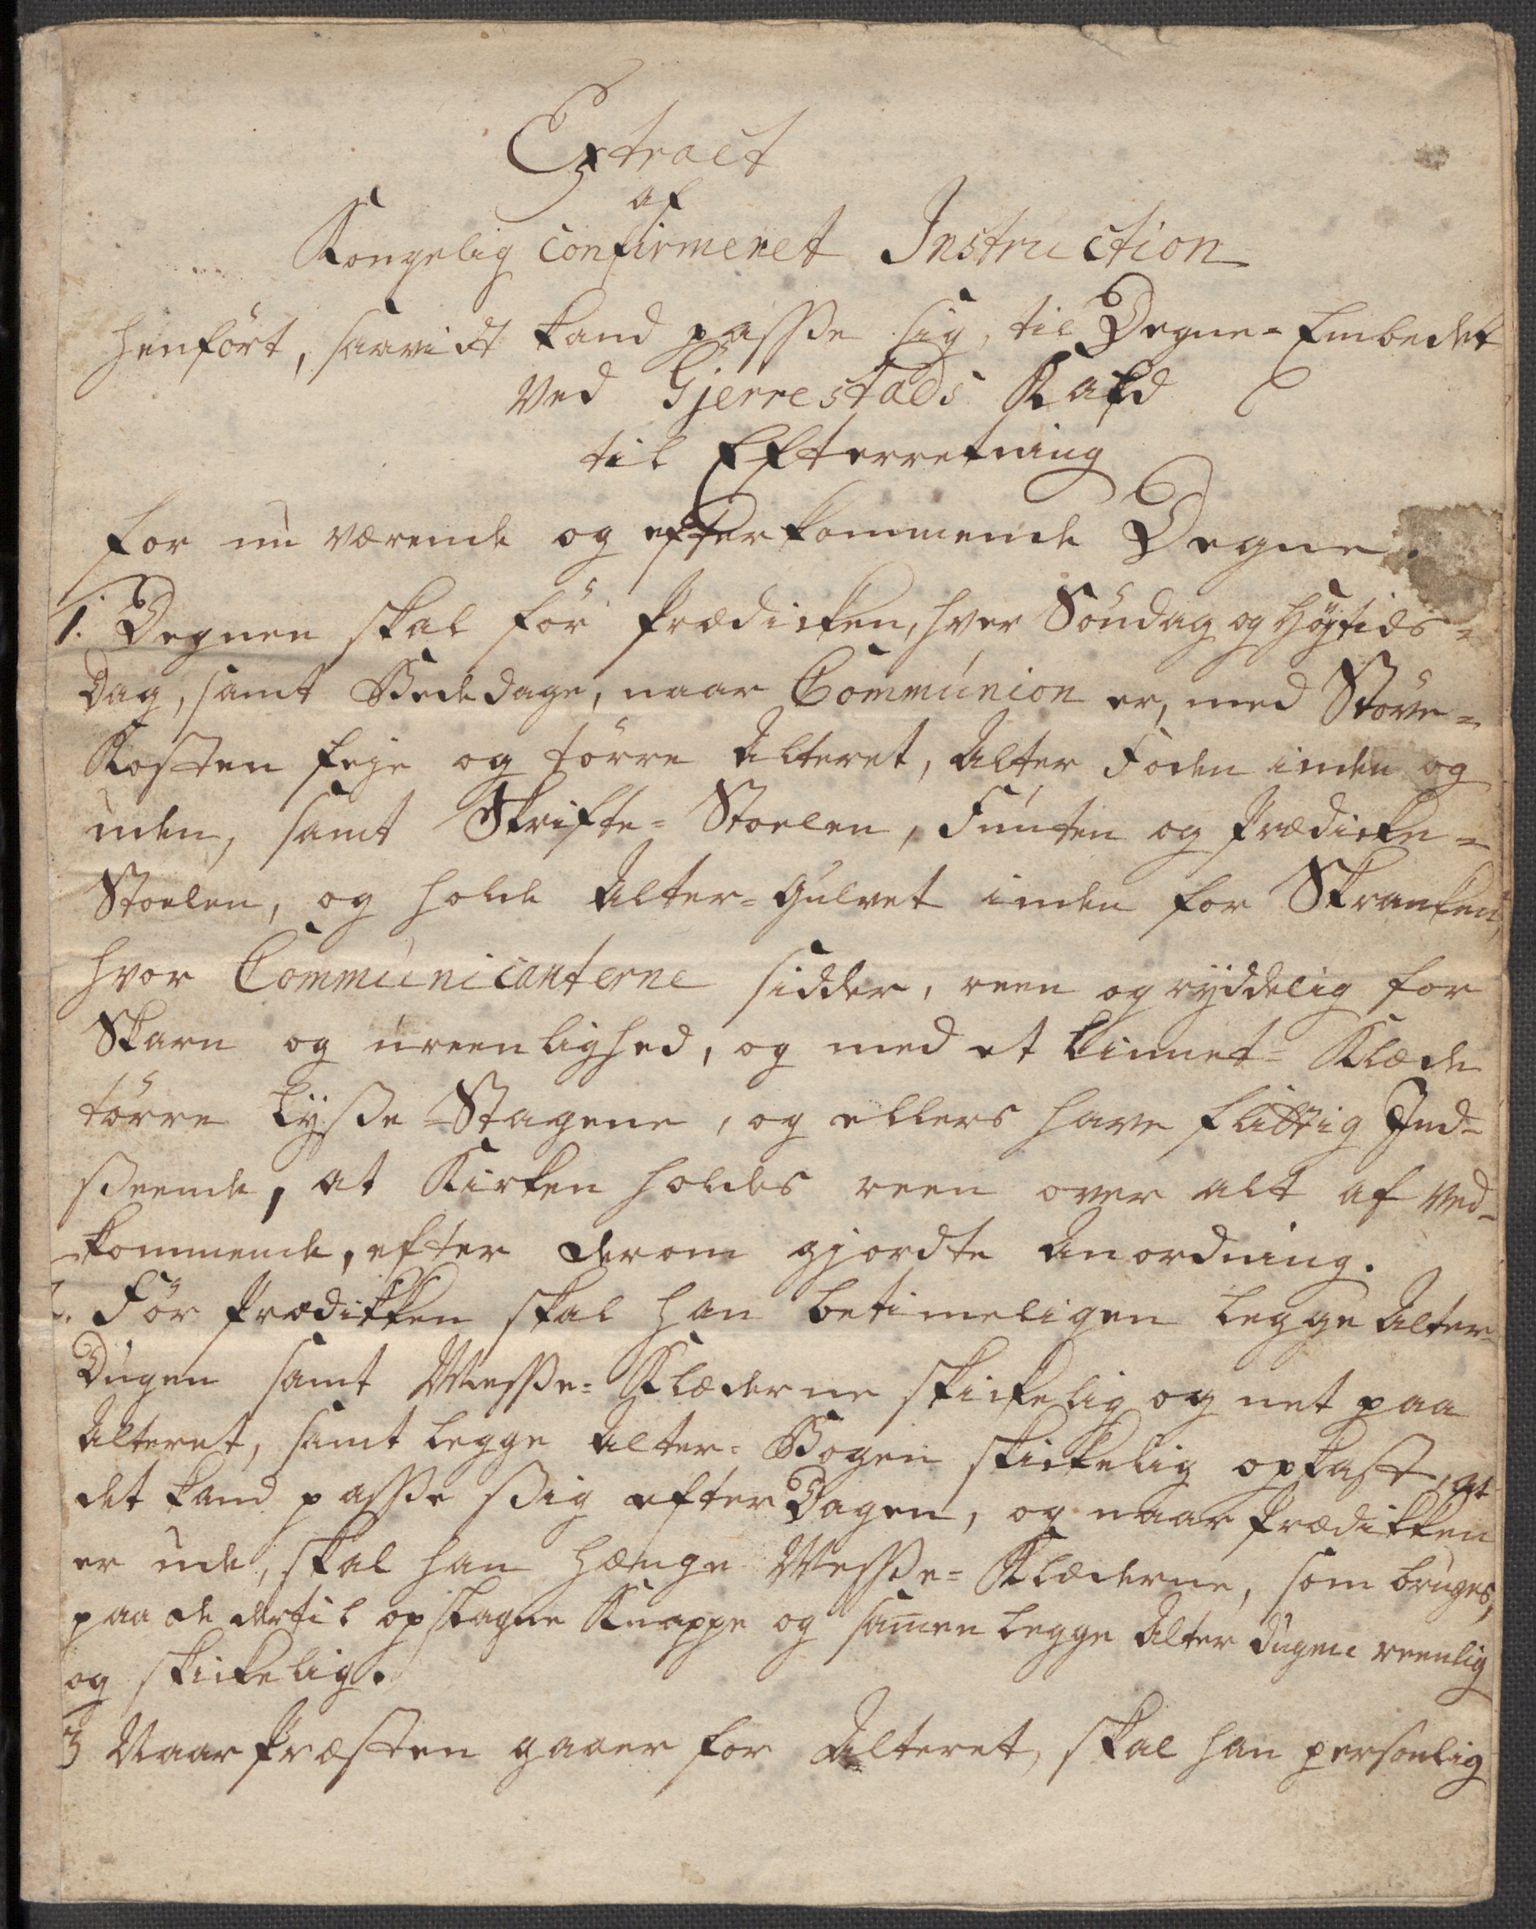 Extract
af
Kongelig confirmeret Instruction
henført, saavidt kand passe sig, til Degne-Embedet
ved Gjerrestads Kald
til Efterretning
for nu værende og efterkommende Degne.
1. Degnen skal før Prædicken, hver Søndag og Højtids-
Dag, samt Bededage, naar Communion er, med Støve-
Kosten feje og tørre Alteret, Alter Foden inden og
uden, samt Skrifte-Stoelen, Funten og Prædicke-
Stoelen, og holde Alter-Gulvet inden for Skranken,
hvor Communicanterne sidder, reen og ryddelig for
Skarn og ureenlighed, og med et Linnet-Klæde
tørre Lysse-Stagene, og ellers have flittig Ind-
seende, at Kirken holdes reen over alt af ved-
kommende, efter derom gjordte Anordning.
2. Før Prædikken skal han betimeligen legge Alter-
Dugen samt Messe-Klæderne skickelig og net paa
Alteret, samt legge Alter-Bogen skickelig opkast, at
det kand passe sig efter Dagen, og naar Prædikken
er ude, skal han hænge Messe-Klæderne, som bruges,
paa de dertil opslagne Knappe og samen legge Alter Dugene reenlig
og skickelig.
3 Naar Præsten gaaer for Alteret, skal han personlig